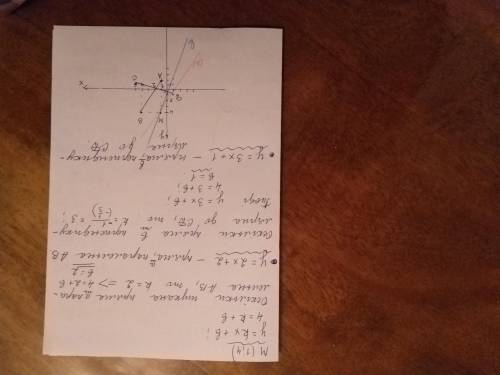 M (1,4)
y = kx + b;
4 = k + b
Оскільки шукана пряма пара-
лельна AB, то k = 2 => 4 = 2 + b
b = 2
y = 2x + 2 – пряма, паралельна AB
Оскільки пряма b перпендику-
лярна до CD, то k = -1/(-1/3) = 3;
Тоді y = 3x + b;
4 = 3 + b;
b = 1
y = 3x + 1 – пряма, перпендику-
лярна до CD.